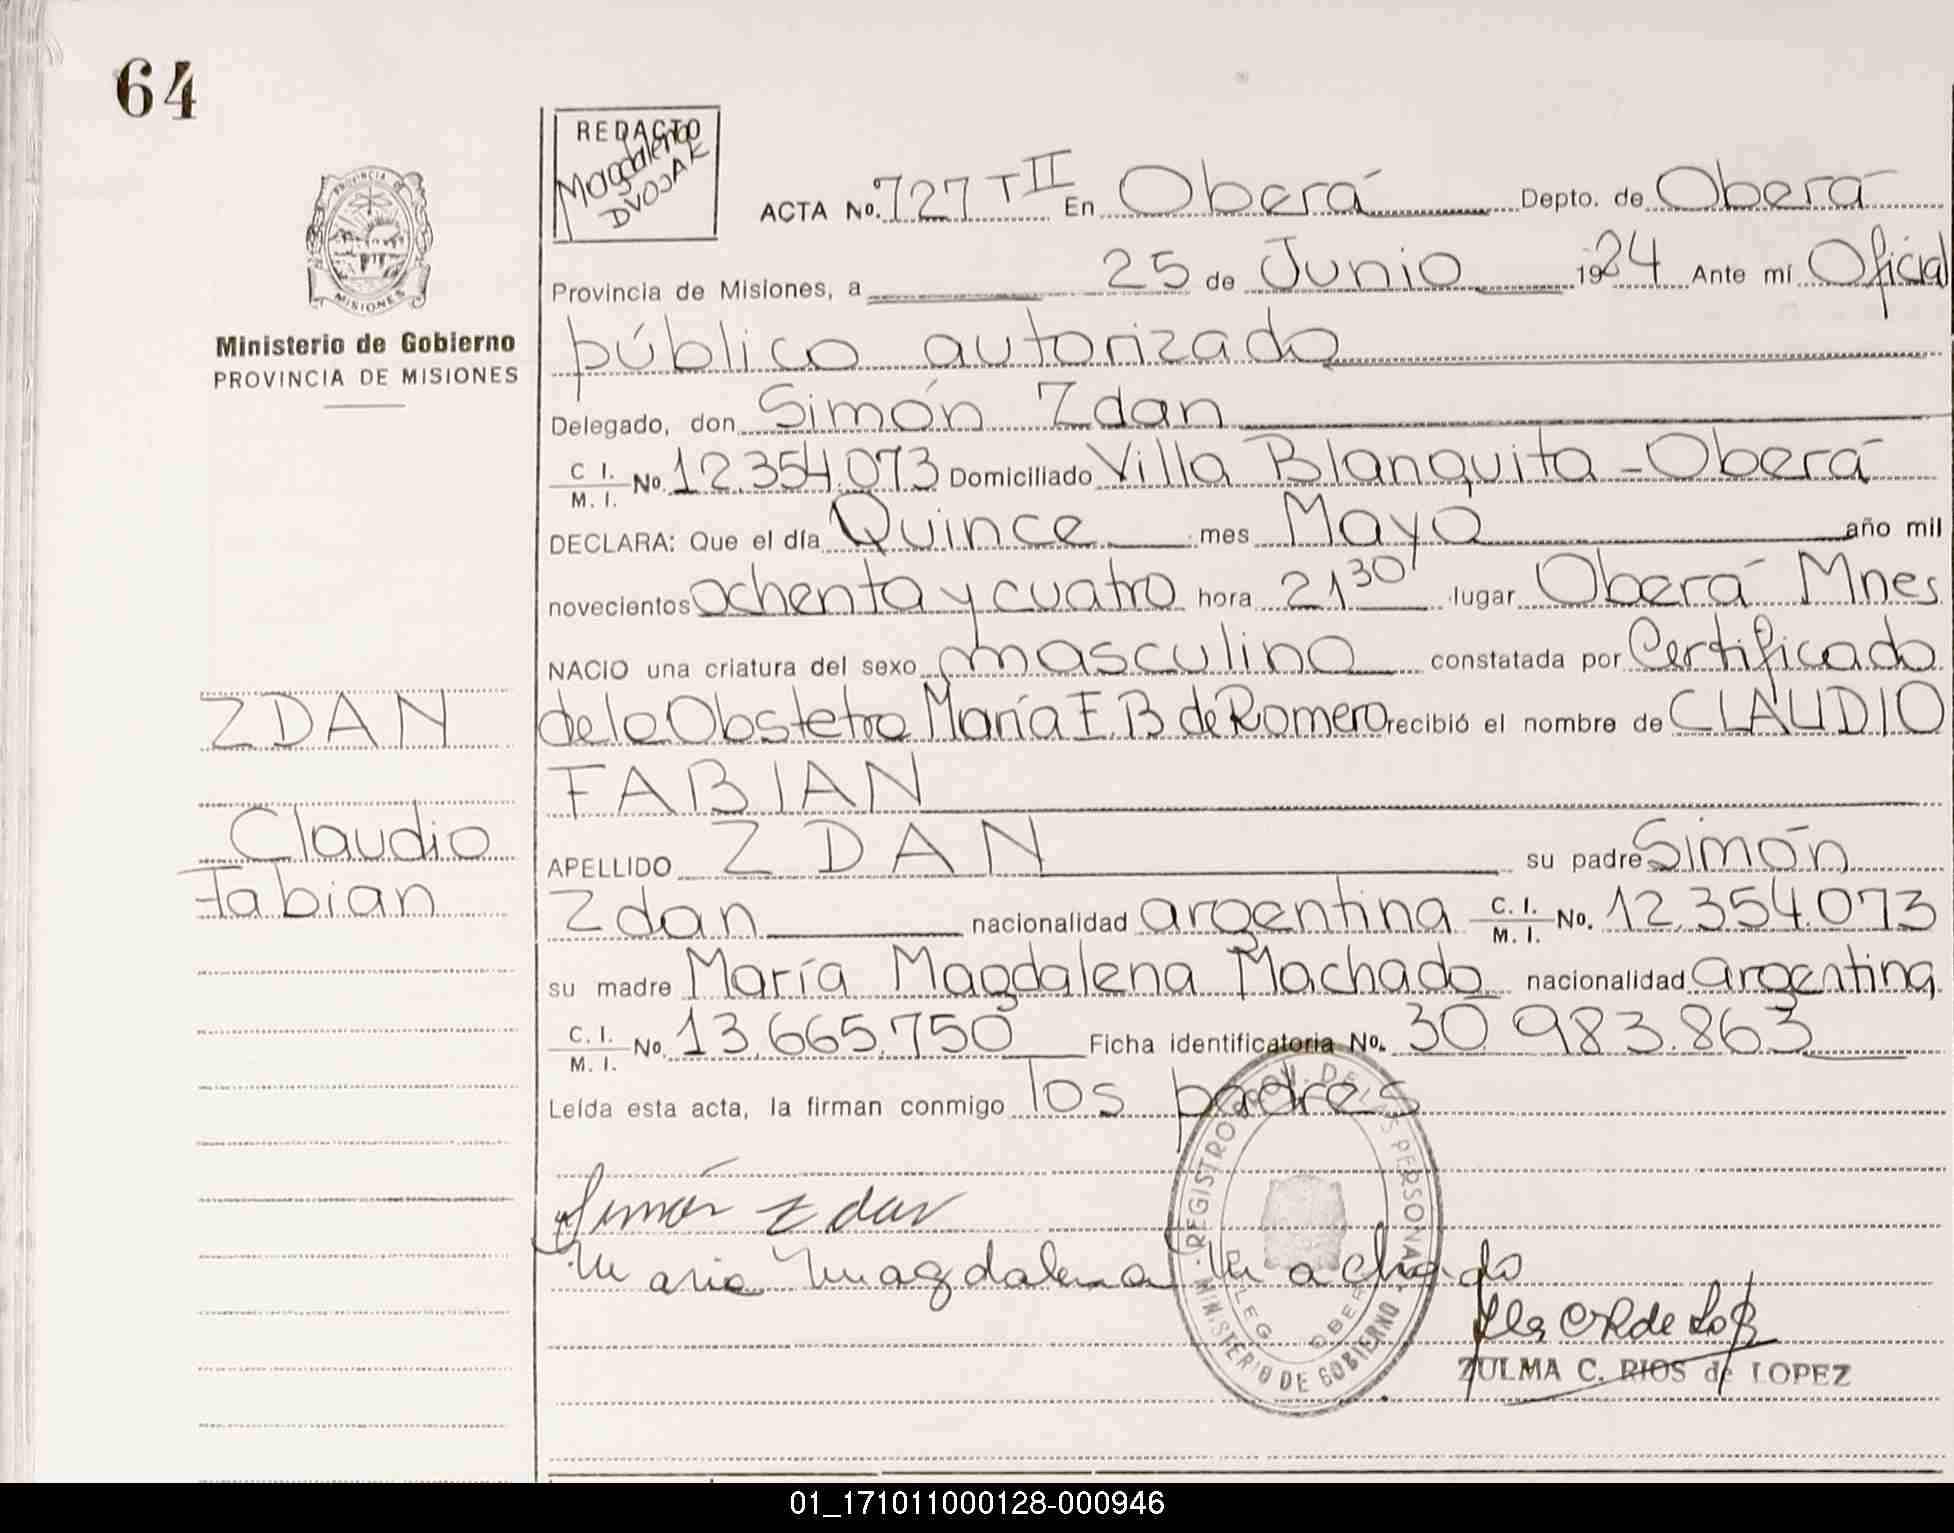 64
REDACTO
Magdalena
DVOJAK
ACTA No. 727 T II En Oberá Depto. de Oberá
Provincia de Misiones, a 25 de Junio 1984 Ante mi Oficial
público autorizado
Delegado, don Simón Zdan
C I. M. I. No. 12.354.073 Domiciliado Villa Blanquita - Oberá
DECLARA: Que el día Quince mes Mayo año mil
novecientos ochenta y cuatro hora 21 30' lugar Oberá Mnes
NACIO una criatura del sexo masculino constatada por Certificado
de la Obstetra María E. B de Romero recibió el nombre de CLAUDIO
FABIAN
APELLIDO ZDAN su padre Simón
Zdan nacionalidad argentina C. I. M. I. No. 12.354.073
su madre María Magdalena Machado nacionalidad argentina
C. I. M. I. No. 13.665.750 Ficha identificatoria No. 30 983.863
Leída esta acta, la firman conmigo los padres
Simón Zdan
Maria Magdalena Machado
ZULMA C. RIOS de LOPEZ
REGISTRO PROV. DE LAS PERSONAS
MINISTERIO DE GOBIERNO
PROVINCIA DE
MISIONES
Ministerio de Gobierno
PROVINCIA DE MISIONES
ZDAN
Claudio
Fabian
01_171011000128-000946